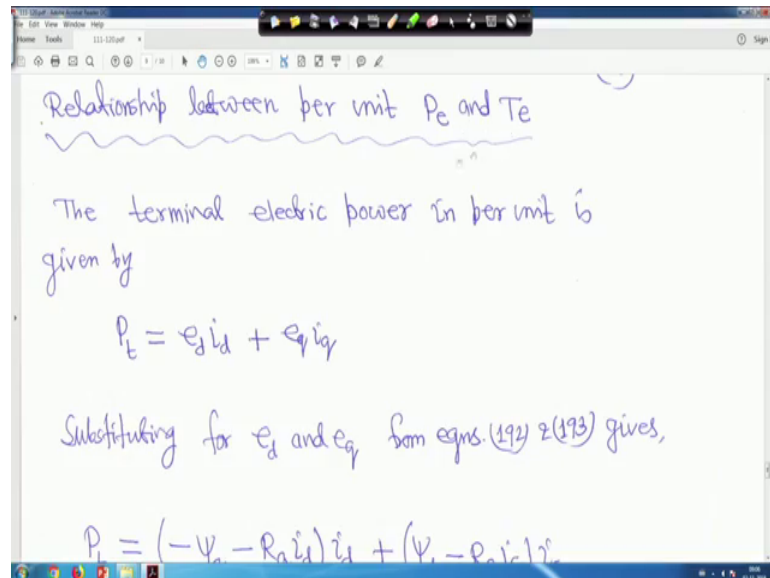 111-120.pdf - Adobe Acrobat Reader DC
File Edit View Window Help
Home Tools 111-120.pdf × Sign
Relationship between per unit Pe and Te
The terminal electric power in per unit is
given by
P_t = e_d i_d + e_q i_q
Substituting for e_d and e_q from eqns.(192) & (193) gives,
P_t = (-Ψ_q - R_a i_d) i_d + (Ψ_d - R_a i_q) i_q